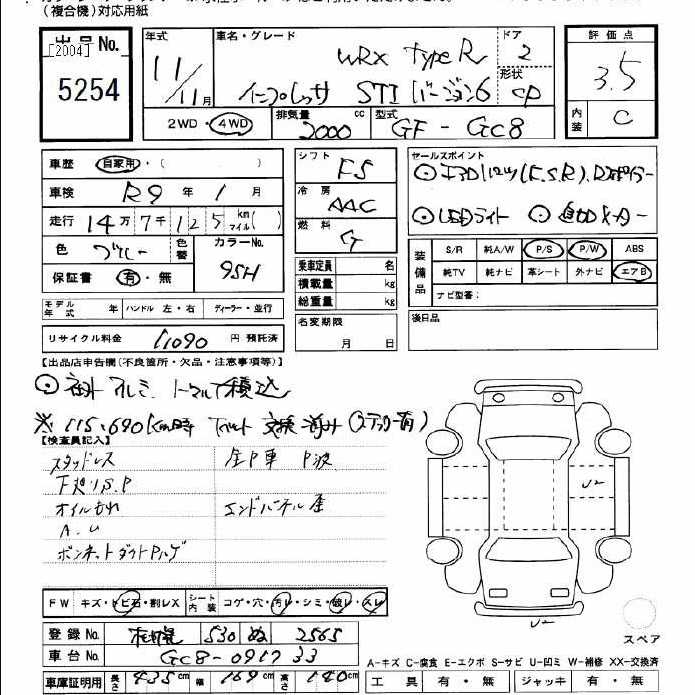 (複合機)対応用紙
出品No.
[2004]
5254
年式 11/11月
車名・グレード WRX TypeR
インプレッサ STI バージョン6
ドア 2
形状 CP
評価点 3.5
内装 C
2WD・4WD
排気量 2000 cc
型式 GF-GC8
車歴 自家用・( )
車検 R9年1月
走行 14万7千125 km マイル( )
色 ブルー
色替
カラーNo. 95H
保証書 有・無
モデル年式 年
ハンドル 左・右
ディーラー・並行
リサイクル料金 11090円 預託済
シフト F5
冷房 AAC
燃料 G
乗車定員 名
積載量 kg
総重量 kg
名変期限 月 日
セールスポイント
エアロパーツ(F.S.R)、Rスポイラー
LEDライト
装備品
S/R 純A/W P/S P/W ABS
純TV 純ナビ 革シート 外ナビ エアB
ナビ型番:
後日品
【出品店申告欄(不良箇所・欠品・注意事項等)】
社外アルミ、ノーマル積込
※115,690km時 Tベルト交換済み(ステッカー有)
【検査員記入】
スタッドレス 全P車 P波
下廻りS.P
オイルもれ エンドパネル歪
A.U
ボンネットダクトPハゲ
FW キズ・トビ石・割レX
シート内装 コゲ・穴・汚レ・シミ・破レ・スレ
登録No. 札幌 530 ぬ 2565
車台No. GC8-091733
車庫証明用 長さ 435cm 幅 169cm 高さ 140cm
U2
U2
スペア
A-キズ C-腐食 E-エクボ S-サビ U-凹ミ W-補修 XX-交換済
工具 有・無 ジャッキ 有・無